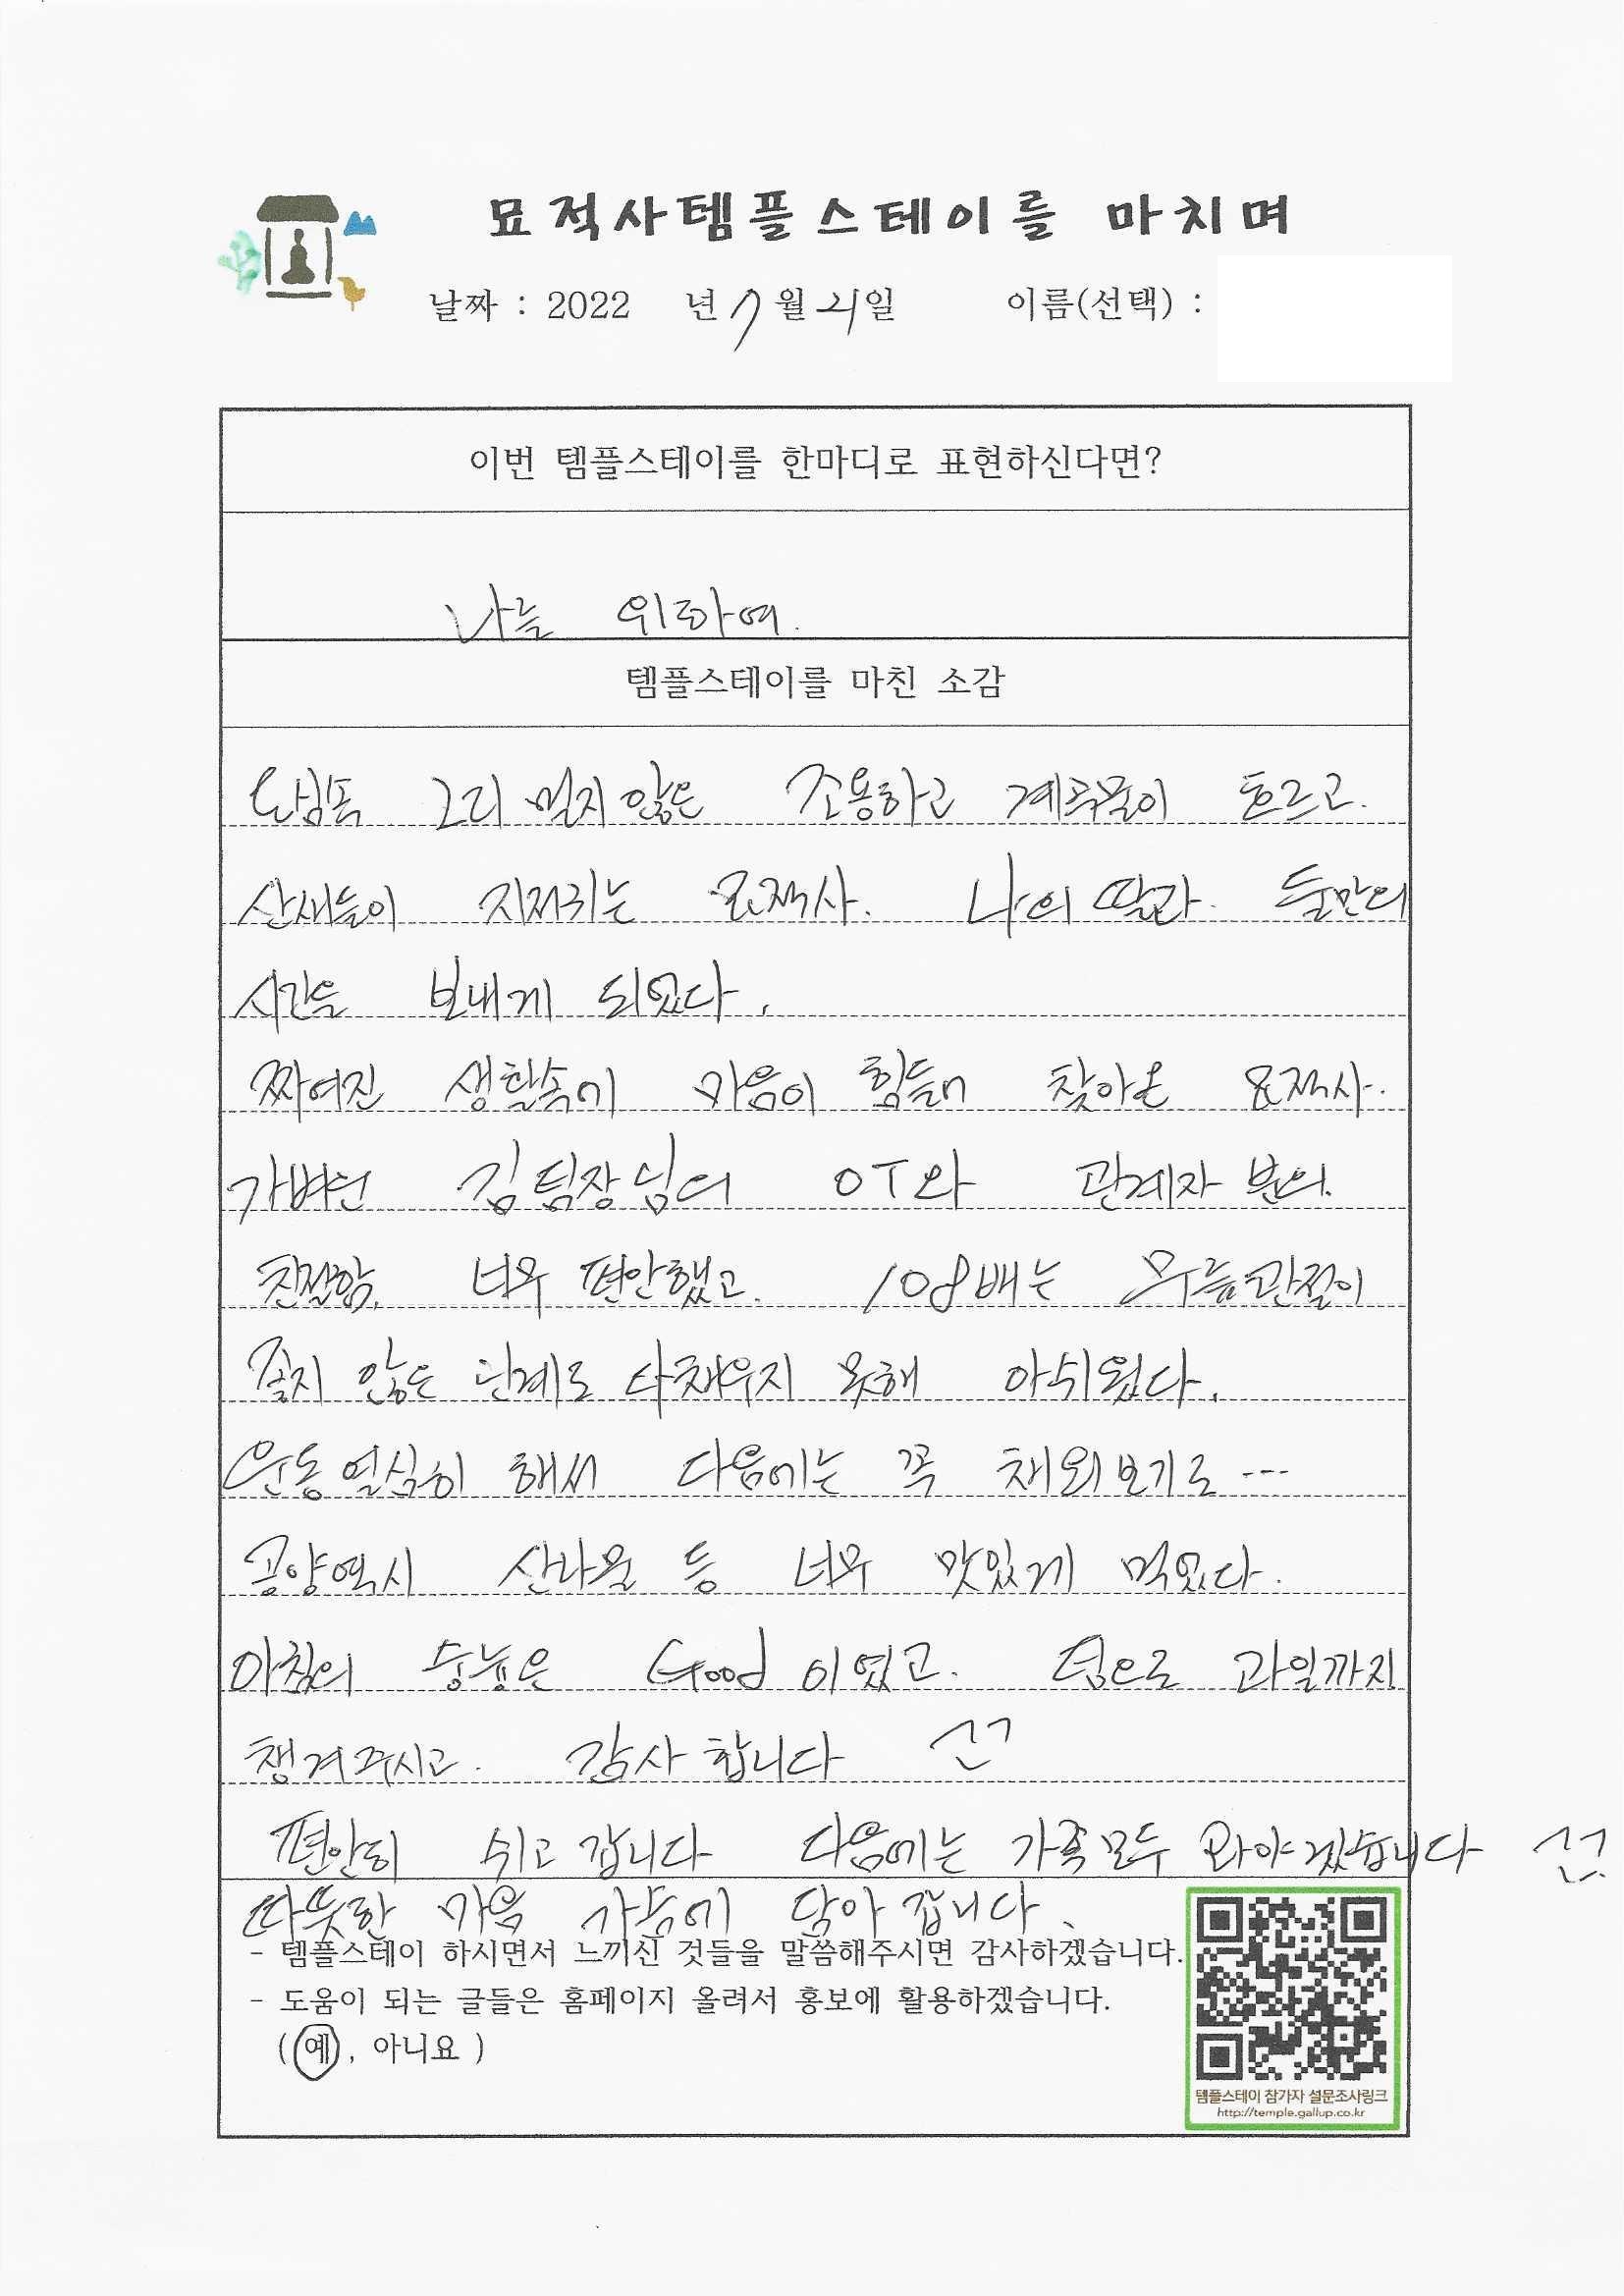 묘적사템플스테이를 마치며
날짜 : 2022 년 7월 21일 이름(선택) :
이번 템플스테이를 한마디로 표현하신다면?
나를 위하여.
템플스테이를 마친 소감
도심속 그리 멀지 않은 조용하고 계곡물이 흐르고.
산새들이 지저귀는 묘적사. 나의 딸과 둘만의
시간을 보내게 되었다.
짜여진 생활속에 마음이 힘들어 찾아온 묘적사.
김팀장님의 OT와 관계자 분의
친절함, 너무 편안했고. 108배는 무릎관절이
좋지 않은 단계로 다 채우지 못해 아쉬웠다.
운동 열심히 해서 다음에는 꼭 채워보기로 ---
공양역시 산나물 등 너무 맛있게 먹었다.
아침의 숭늉은 Good 이였고. 덤으로 과일까지
챙겨주시고. 감사합니다
편안히 쉬고 갑니다 다음에는 가족모두 와야겠습니다
따뜻한 마음 가슴에 담아 갑니다.
- 템플스테이 하시면서 느끼신 것들을 말씀해주시면 감사하겠습니다.
- 도움이 되는 글들은 홈페이지 올려서 홍보에 활용하겠습니다.
( 예 , 아니요 )
템플스테이 참가자 설문조사링크
http://temple.gallup.co.kr